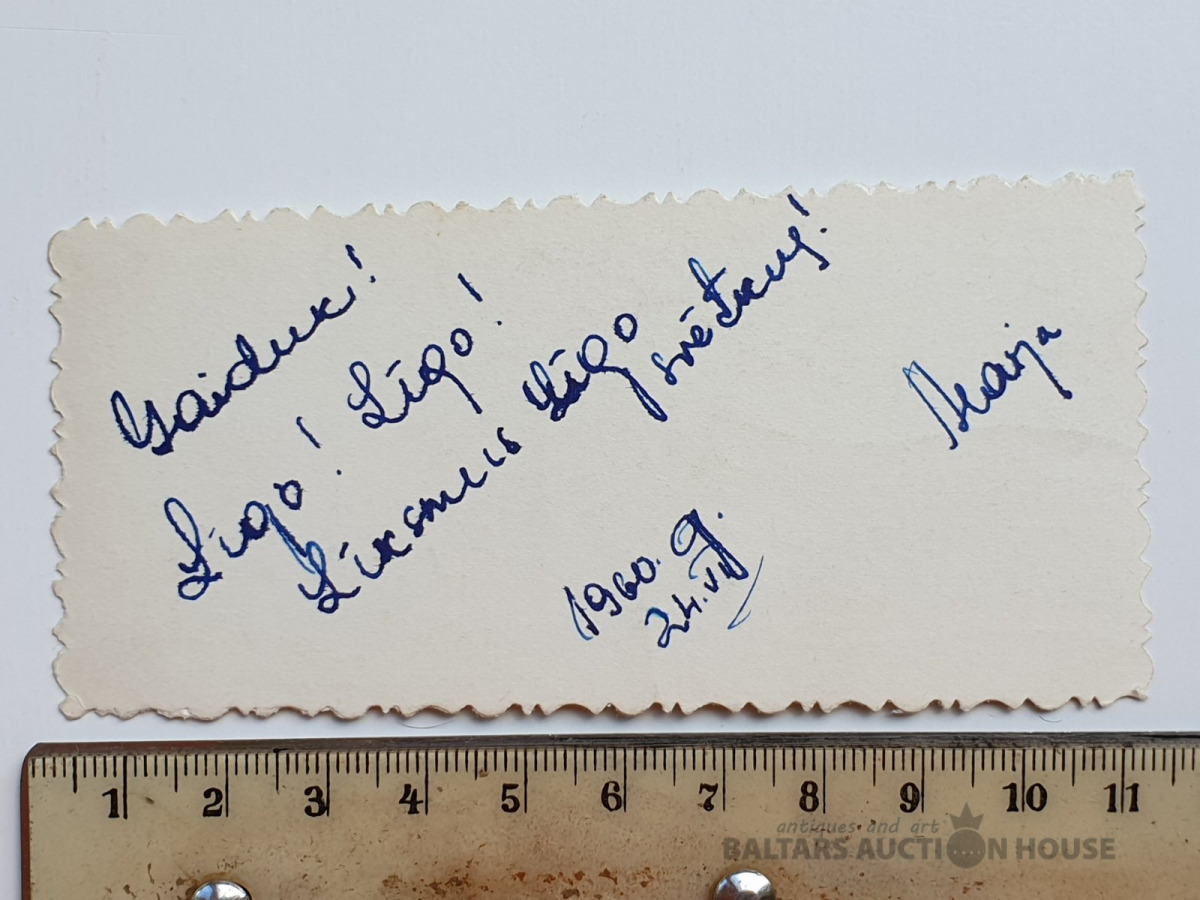 Līgo! Līgo!
Līksmus Līgo
svētkus!
Marija
1960. g.
24. VI
1 2 3 4 5 6 7 8 9 10 11
antiques and art
BALTARS AUCTION HOUSE